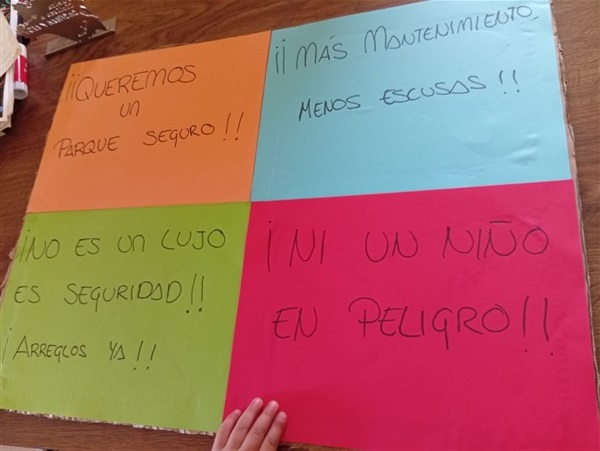 ¡¡QUEREMOS
UN
PARQUE SEGURO!!
¡¡MÁS MANTENIMIENTO,
MENOS ESCUSAS!!
¡NO ES UN LUJO
ES SEGURIDAD!!
¡ARREGLOS YA!!
¡NI UN NIÑO
EN PELIGRO!!